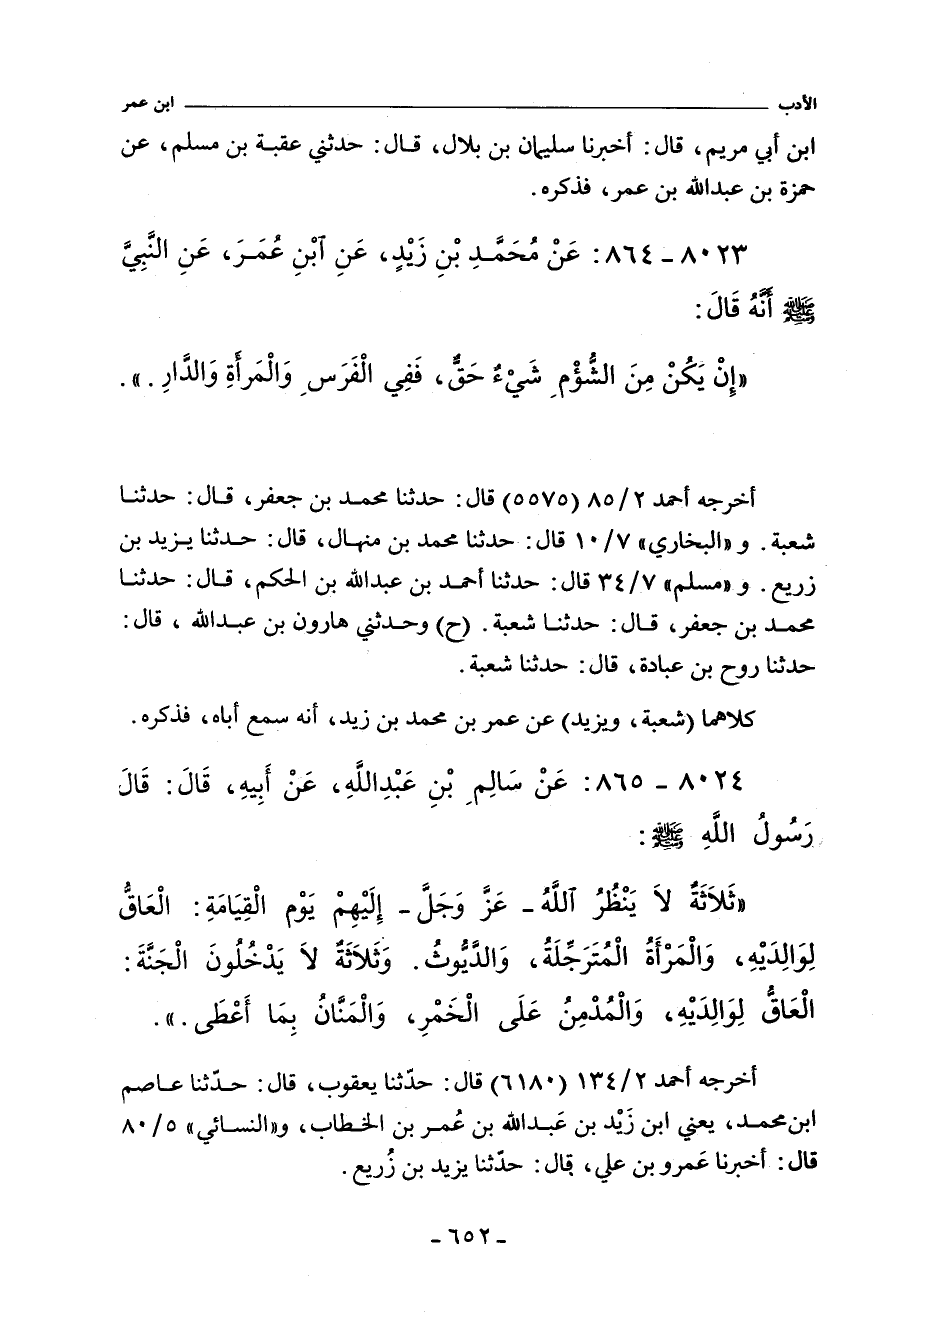 الأدب ــــــ ابن عمر
ابن أبي مريم، قال: أخبرنا سليمان بن بلال، قال: حدثني عقبة بن مسلم، عن
حمزة بن عبدالله بن عمر، فذكره.
٨٠٢٣ - ٨٦٤: عَنْ مُحَمَّدِ بْنِ زَيْدٍ، عَنِ ٱبْنِ عُمَرَ، عَنِ النَّبِيِّ
ﷺ أَنَّهُ قَالَ:
«إِنْ يَكُنْ مِنَ الشُّؤْمِ شَيْءٌ حَقٌّ، فَفِي الْفَرَسِ وَالْمَرأَةِ وَالدَّارِ.».
أخرجه أحمد ٨٥/٢ (٥٥٧٥) قال: حدثنا محمد بن جعفر، قال: حدثنا
شعبة. و«البخاري» ١٠/٧ قال: حدثنا محمد بن منهال، قال: حدثنا يزيد بن
زريع. و«مسلم» ٣٤/٧ قال: حدثنا أحمد بن عبدالله بن الحكم، قال: حدثنا
محمد بن جعفر، قال: حدثنا شعبة. (ح) وحدثني هارون بن عبدالله ، قال:
حدثنا روح بن عبادة، قال: حدثنا شعبة.
كلاهما (شعبة، ويزيد) عن عمر بن محمد بن زيد، أنه سمع أباه، فذكره.
٨٠٢٤ - ٨٦٥: عَنْ سَالِمِ بْنِ عَبْدِاللَّهِ، عَنْ أَبِيهِ، قَالَ: قَالَ
رَسُولُ اللَّهِ ﷺ:
«ثَلَاثَةٌ لاَ يَنْظُرُ ٱللَّهُ - عَزَّ وَجَلَّ - إِلَيْهِمْ يَوْمِ الْقِيَامَةِ: الْعَاقُّ
لِوَالِدَيْهِ، وَالْمَرْأَةُ الْمُتَرَجِّلَةُ، وَالدَّيُّوثُ. وَثَلَاثَةٌ لاَ يَدْخُلُونَ الْجَنَّةَ:
الْعَاقُّ لِوَالِدَيْهِ، وَالْمُدْمِنُ عَلَى الْخَمْرِ، وَالْمَنَّانُ بِمَا أَعْطَى.».
أخرجه أحمد ١٣٤/٢ (٦١٨٠) قال: حدّثنا يعقوب، قال: حدّثنا عاصم
ابن محمد، يعني ابن زَيْد بن عَبدالله بن عُمر بن الخطاب، و«النسائي» ٨٠/٥
قال: أخبرنا عَمرو بن علي، قال: حدّثنا يزيد بن زُريع.
- ٦٥٢ -